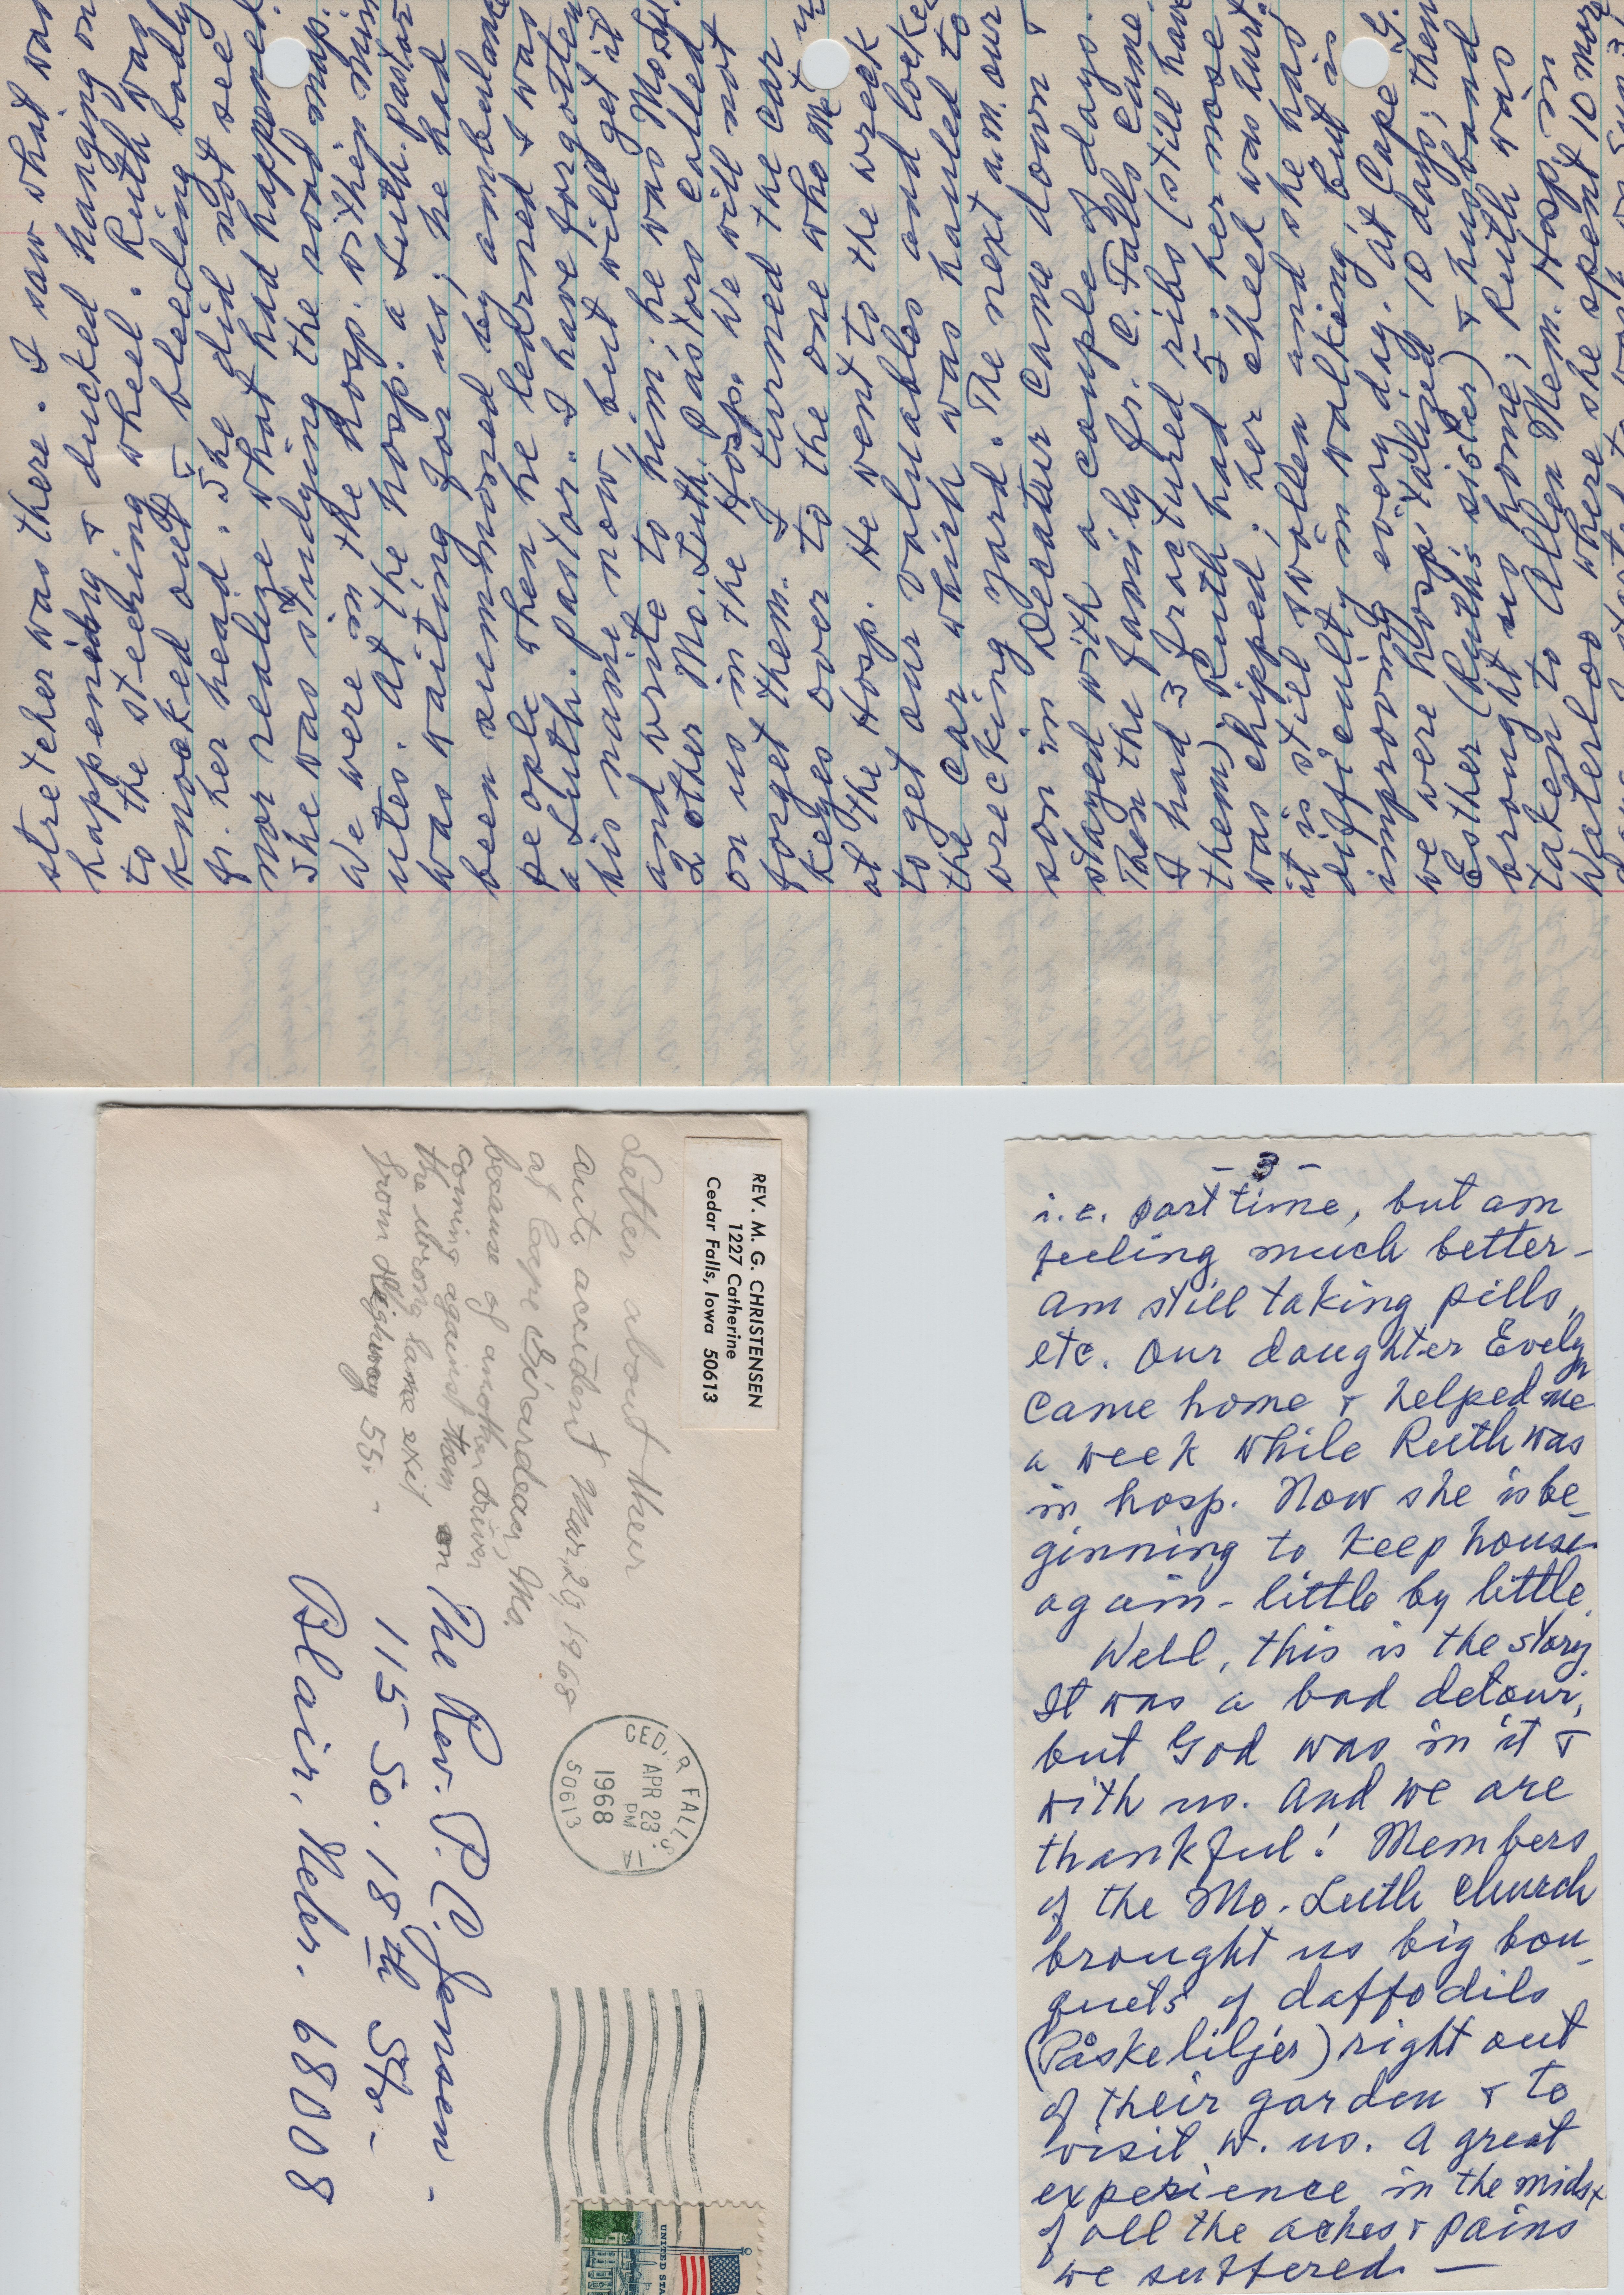 stretcher was there. I saw what was
happening & ducked hanging on
to the steering wheel. Ruth was
knocked out & bleeding badly
fr. her head. She did not see
nor realize what had happened.
She was studying the road map.
We were in the hosp. within min
utes. At the hosp. a Luth. pastor
was waiting for us; he had
been summonsed by ambulance
people when he learned I was
a Luth. pastor. I have forgotten
his name now, but will get it
and write to him; he was Mo. Syn.
2 other Mo. Luth. Pastors called
on us in the Hosp. We will not
forget them. I turned the car
keys over to the one who met us
at the Hosp. He went to the wreck
to get our valuables and locked
the car which was hauled to
wrecking yard. The next a.m. our
son in Decatur came down &
stayed with a couple of days.
Then the family fr. C. Falls came.
I had 3 fractured ribs (still have
them) Ruth had 5; her nose
was chipped; her cheek was hurt.
it is still swollen and she has
difficulty in walking, but is
improving every day. At Cape G.
we were hospitalized 10 days; then
Esther (Ruth's sister) & husband
brought us home; Ruth was
taken to Allen Mem. Hosp. in
Waterloo where she spent 10 more
REV. M. G. CHRISTENSEN
1227 Catherine
Cedar Falls, Iowa 50613
Letter about their
auto accident Mar. 29 1968
at Cape Girardeau, Mo.
because of another driver
coming against them on
the wrong lane exit
from Highway 55. -
CEDAR FALLS IA
APR 23
PM
1968
50613
UNITED STA
The Rev. P. C. Jensen -
115 So. 18th Str. -
Blair, Nebr. 68008
- 3 -
i.e. part time, but am
feeling much better -
am still taking pills,
etc. Our daughter Evelyn
came home & helped me
a week while Ruth was
in hosp. Now she is be-
ginning to keep house
again - little by little.
Well, this is the story
It was a bad detour,
but God was in it &
with us. And we are
thankful! Members
of the Mo. Luth church
brought us big bou-
quets of daffodils
(Påskeliljer) right out
of their garden & to
visit w. us. A great
experience in the midst
of all the aches & pains
we suffered. —